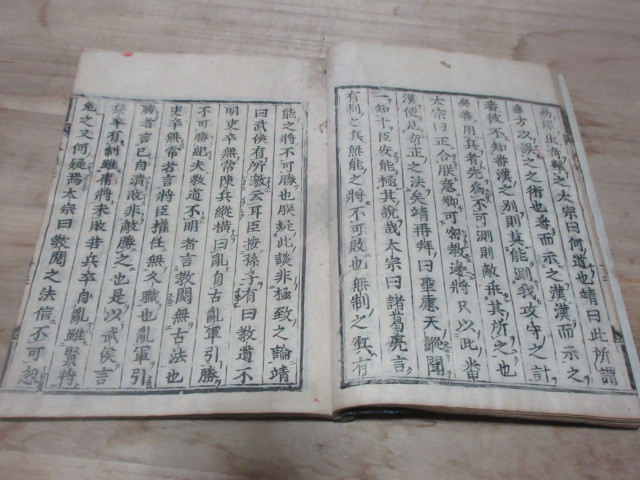 易服此奇之也太宗曰何道也靖曰此所謂
多方以誤之之術也番而示之漢漢而示之
番彼不知番漢之別則莫能測我攻守之計
矣善用兵者先為不可測則敵乖其所之也
太宗曰正合朕意卿可密教邊將只以此番
漢便見奇正之法矣靖再拜曰聖慮天縱聞
一知十臣安能極其說哉太宗曰諸葛亮言
有制之兵無能之將不可敗也無制之兵有
能之將不可勝也朕疑此談非極致之論靖
曰武侯有所激云耳臣按孫子有曰教道不
明吏卒無常陳兵縱橫曰亂自古亂軍引勝
不可勝紀夫教道不明者言教閱無古法也
吏卒無常者言將臣權任無久職也亂軍引
勝者言己自潰敗非敵勝之也是以武侯言
兵卒有制雖庸將未敗若兵卒自亂雖賢將
危之又何疑焉太宗曰教閱之法信不可忽